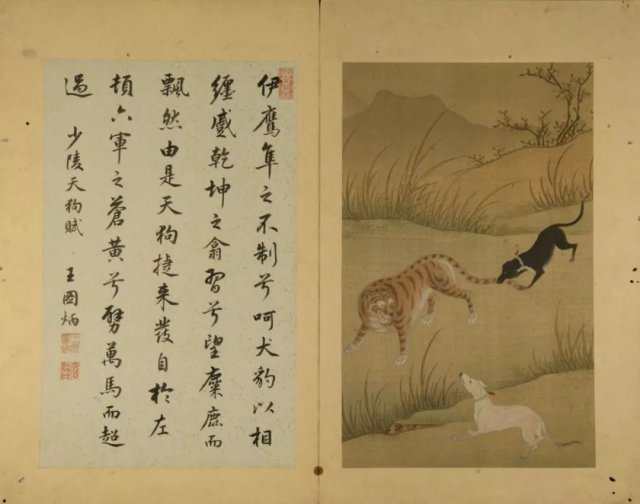 伊鷹隼之不制兮呵犬豹以相
纏蹙乾坤之翕習兮望麋鹿而
飄然由是天狗捷來發自於左
頓六軍之蒼黃兮劈萬馬而超
過
少陵天狗賦 王圖炳